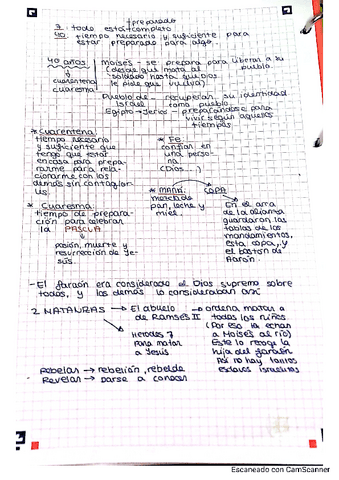 preparado
7: todo está completo
40: tiempo necesario y suficiente para
estar preparado para algo.
40 años
y
cuarentena
cuaresma
Moisés - se prepara para liberar a su
pueblo
(desde que mata al
soldado hasta que Dios
le pide que vuelva).
Pueblo de Israel recuperan su identidad
como pueblo
Egipto → Jericó - preparándose para
vivir según aquellos
tiempos
* Cuarentena:
tiempo necesario
y suficiente que
tengo que estar
en casa para prepa-
rarme para rela-
cionarme con los
demás sin contagiar-
* Fe:
confiar en
una perso-
na.
(Dios...)
* Cuaresma:
tiempo de prepara-
ción para celebrar
la PASCUA
pasión, muerte y
resurrección de Je-
sús.
* MANÁ:
mezcla de
pan, leche y
miel.
COPA
En el arca
de la alianza
guardaron las
tablas de los
mandamientos,
esta copa, y
el bastón de
Aarón.
- El faraón era considerado el Dios supremo sobre
todos, y los demás lo consideraban así
2 MATANZAS → El abuelo
de Ramsés II
→ ordena matar a
todos los niños
(Por eso la echan
a Moisés al río)
Este lo recoge la
hija del faraón
Por no hay tantos
israelitas
Herodes
para matar
a Jesús
Rebelar → rebelión, rebelde
Revelar → darse a conocer
Escaneado con CamScanner